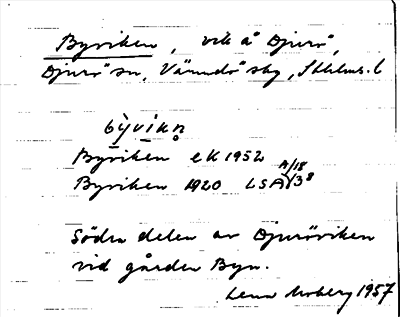 Byviken, vik å Djurö,
Djurö sn, Värmdö skg, Sthlms. l
byvikn
Byviken ek 1952
Byviken 1920 LSA
Södra delen av Djuröviken
vid gården Byn.
Lena Moberg 1957